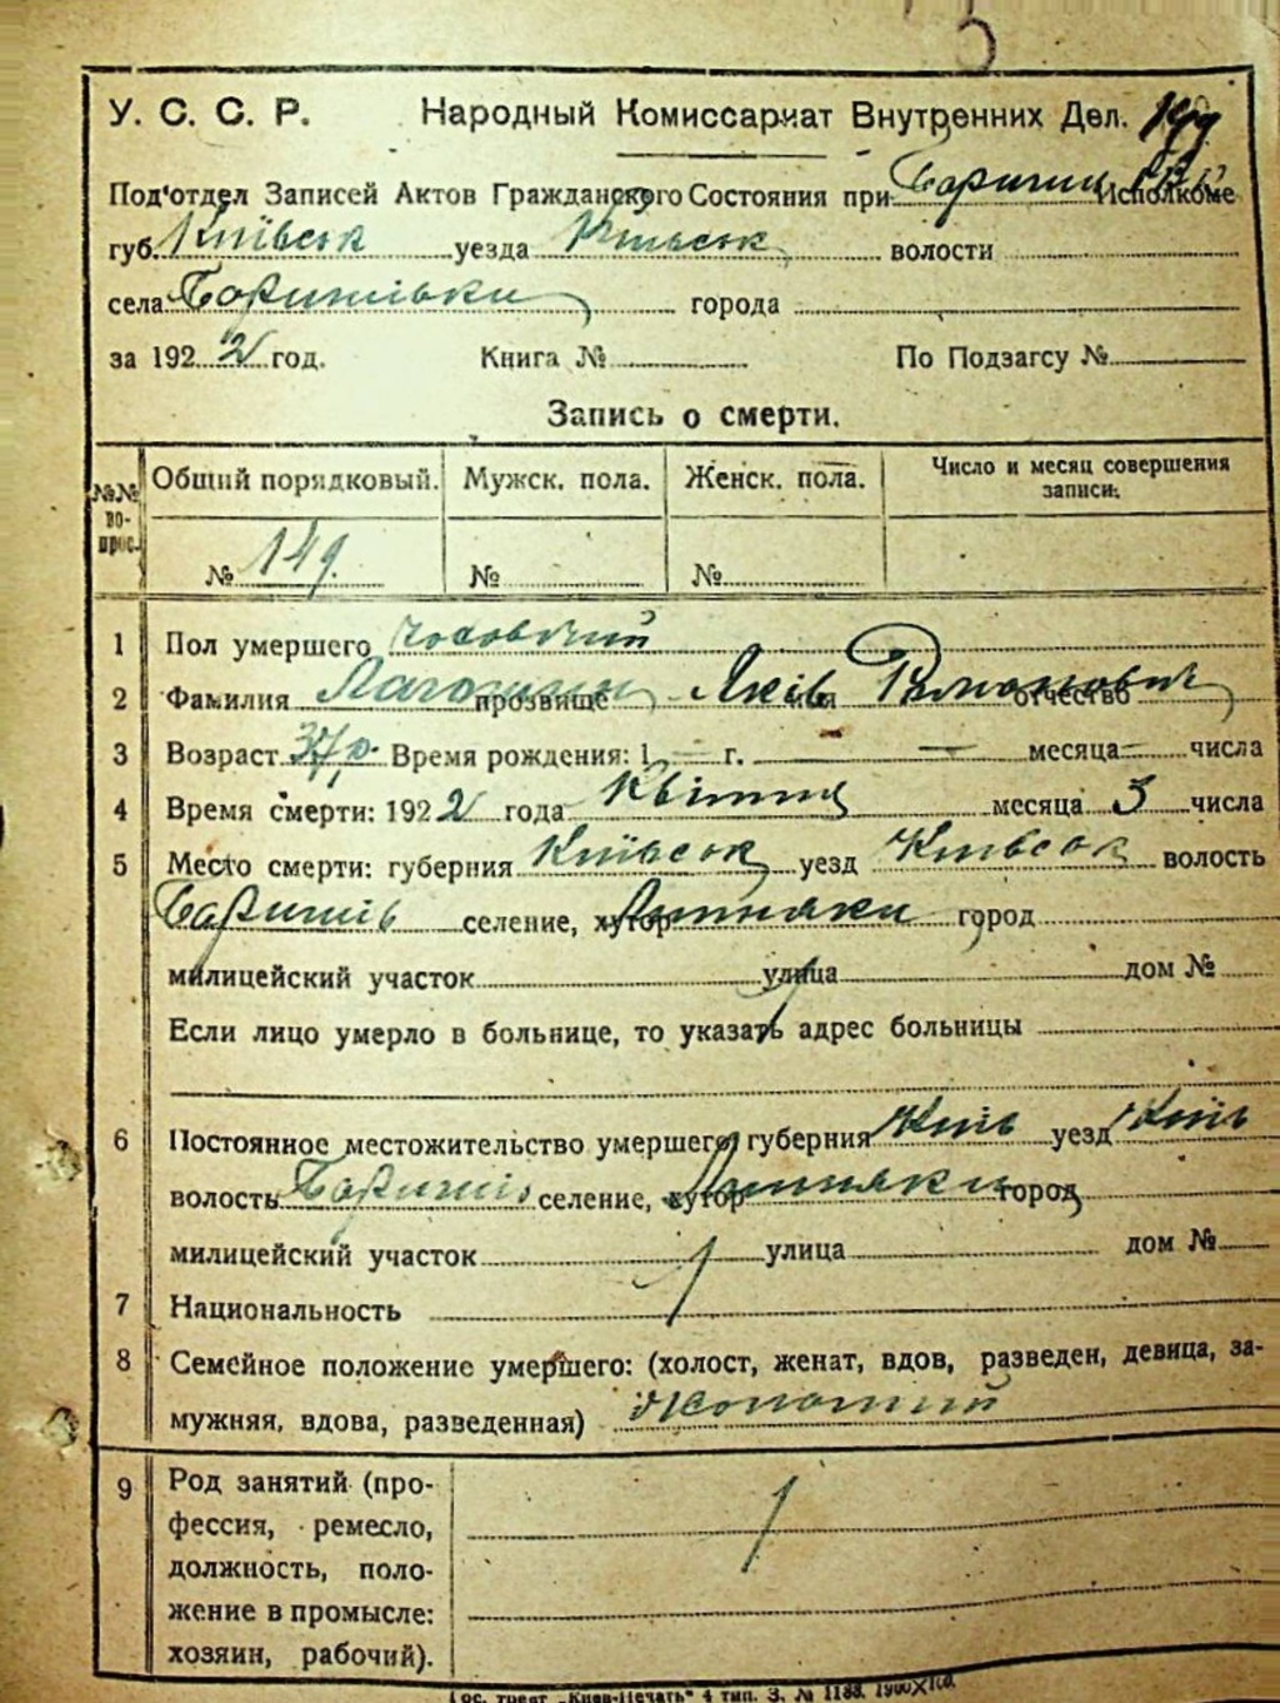 У. С. С. Р. Народный Комиссариат Внутренних Дел. 149
Под'отдел Записей Актов Гражданского Состояния при Исполкоме
губ. Київськ уезда Київськ волости
села города
за 1922 год. Книга № По Подзагсу №
Запись о смерти.
№№ вопрос. Общий порядковый. Мужск. пола. Женск. пола. Число и месяц совершения записи.
№ 149. № №
1 Пол умершего чоловічий
2 Фамилия прозвище Яків имя Романович отчество
3 Возраст 37 р. Время рождения: 1 — г. — месяца — числа
4 Время смерти: 1922 года Квітня месяца 3 числа
5 Место смерти: губерния Київськ уезд Київськ волость
Баришів селение, хутор город
милицейский участок улица дом №
Если лицо умерло в больнице, то указать адрес больницы
6 Постоянное местожительство умершего, губерния Київ уезд Київ
волость Баришів селение, хутор город
милицейский участок улица дом №
7 Национальность
8 Семейное положение умершего: (холост, женат, вдов, разведен, девица, за-
мужняя, вдова, разведенная) жонатий
9 Род занятий (про-
фессия, ремесло,
должность, поло-
жение в промысле:
хозяин, рабочий).
Гос. трест „Киев-Печать" 4 тип. З. № 1188.